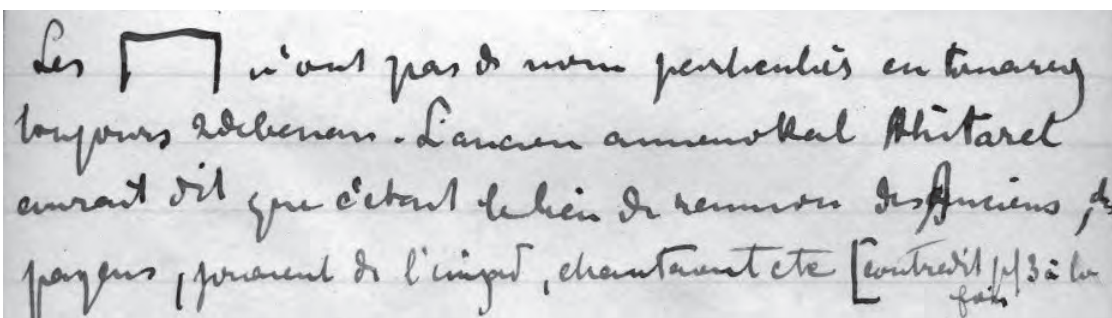 Les n'ont pas de nom particulier en touareg
toujours adebenan. L'ancien amenokal Ahitarel
aurait dit que c'était le lieu de réunion des Anciens, des
payens, jouaient de l'imzad, chantaient etc [contredit p/ 3 à la
fois